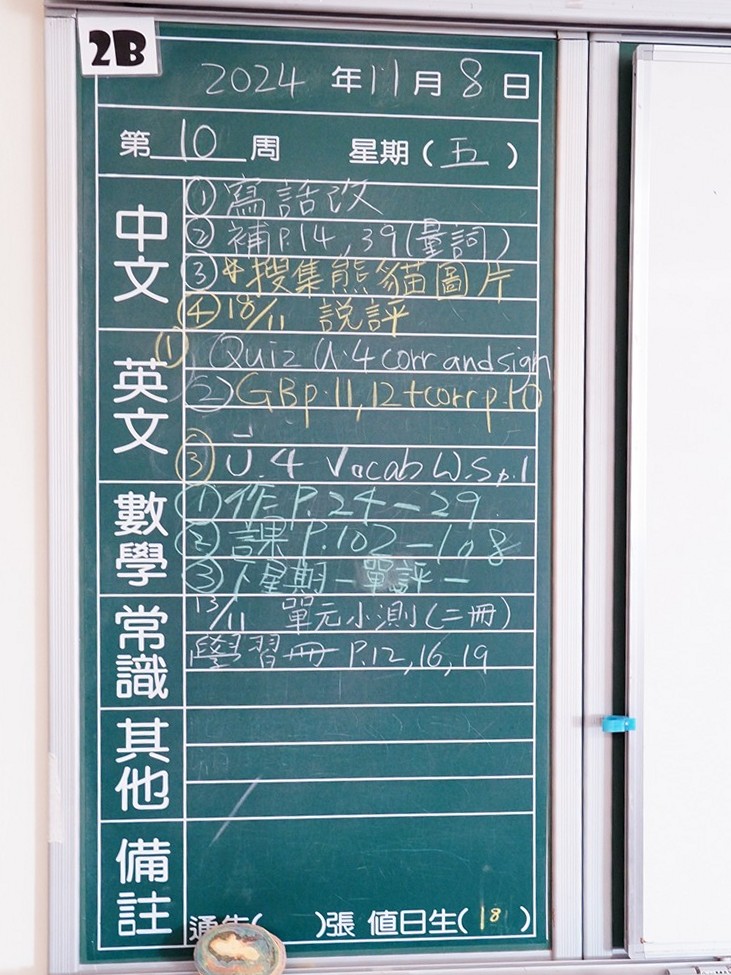 2B
2024 年 11 月 8 日
第 10 周 星期 ( 五 )
中文
① 寫話改
② 補P.14, 39 (量詞)
③ *搜集熊貓圖片
④ 18/11 說評
英文
① Quiz U.4 corr and sign
② GB p.11, 12 + corr p.10
③ U.4 Vocab W.S p.1
數學
① 作 P.24 - 29
② 課 P.102 - 108
③ 下星期一單評一
常識
13/11 單元小測(二冊)
學習冊 P.12, 16, 19
其他
備註
通告( )張 值日生( 18 )